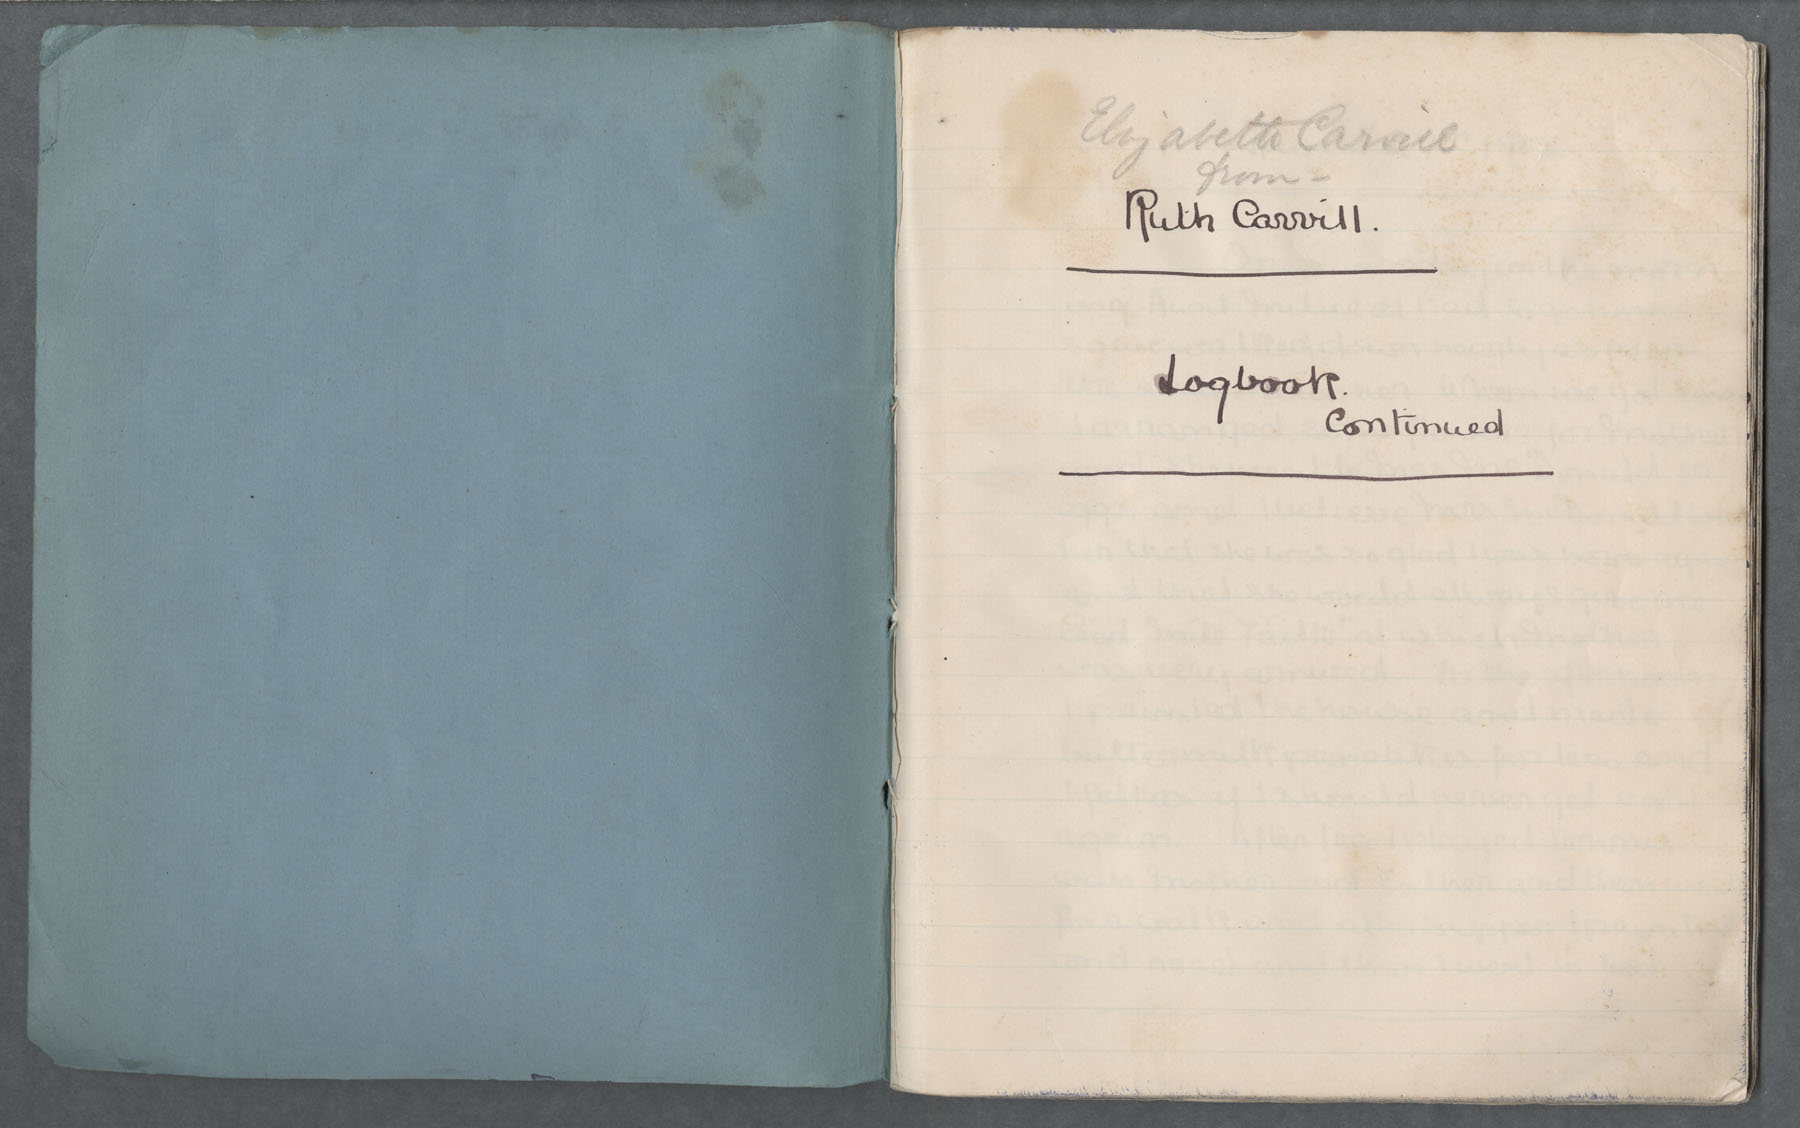 Elizabeth Carvill
from -
Ruth Carvill.
Logbook.
Continued